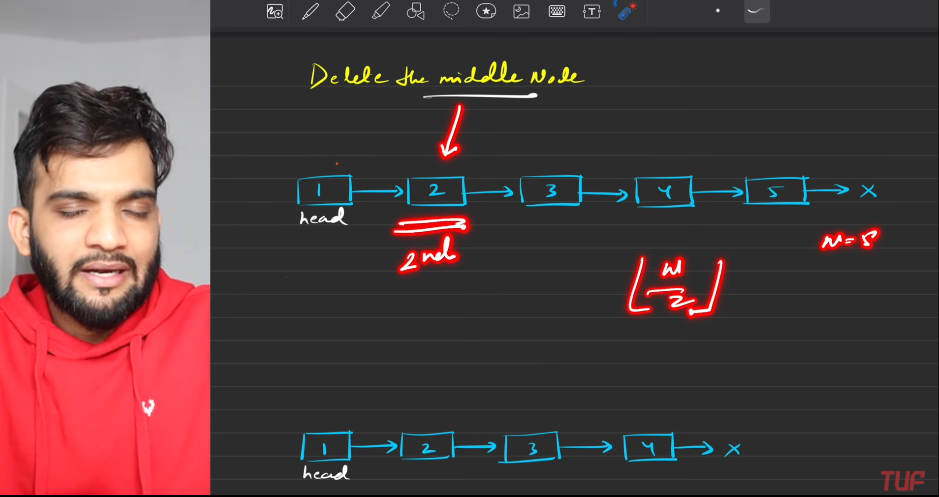 Delete the middle Node
1 2 3 4 5 x
head
2nd
n=5
⌊n/2⌋
1 2 3 4 x
head
TUF